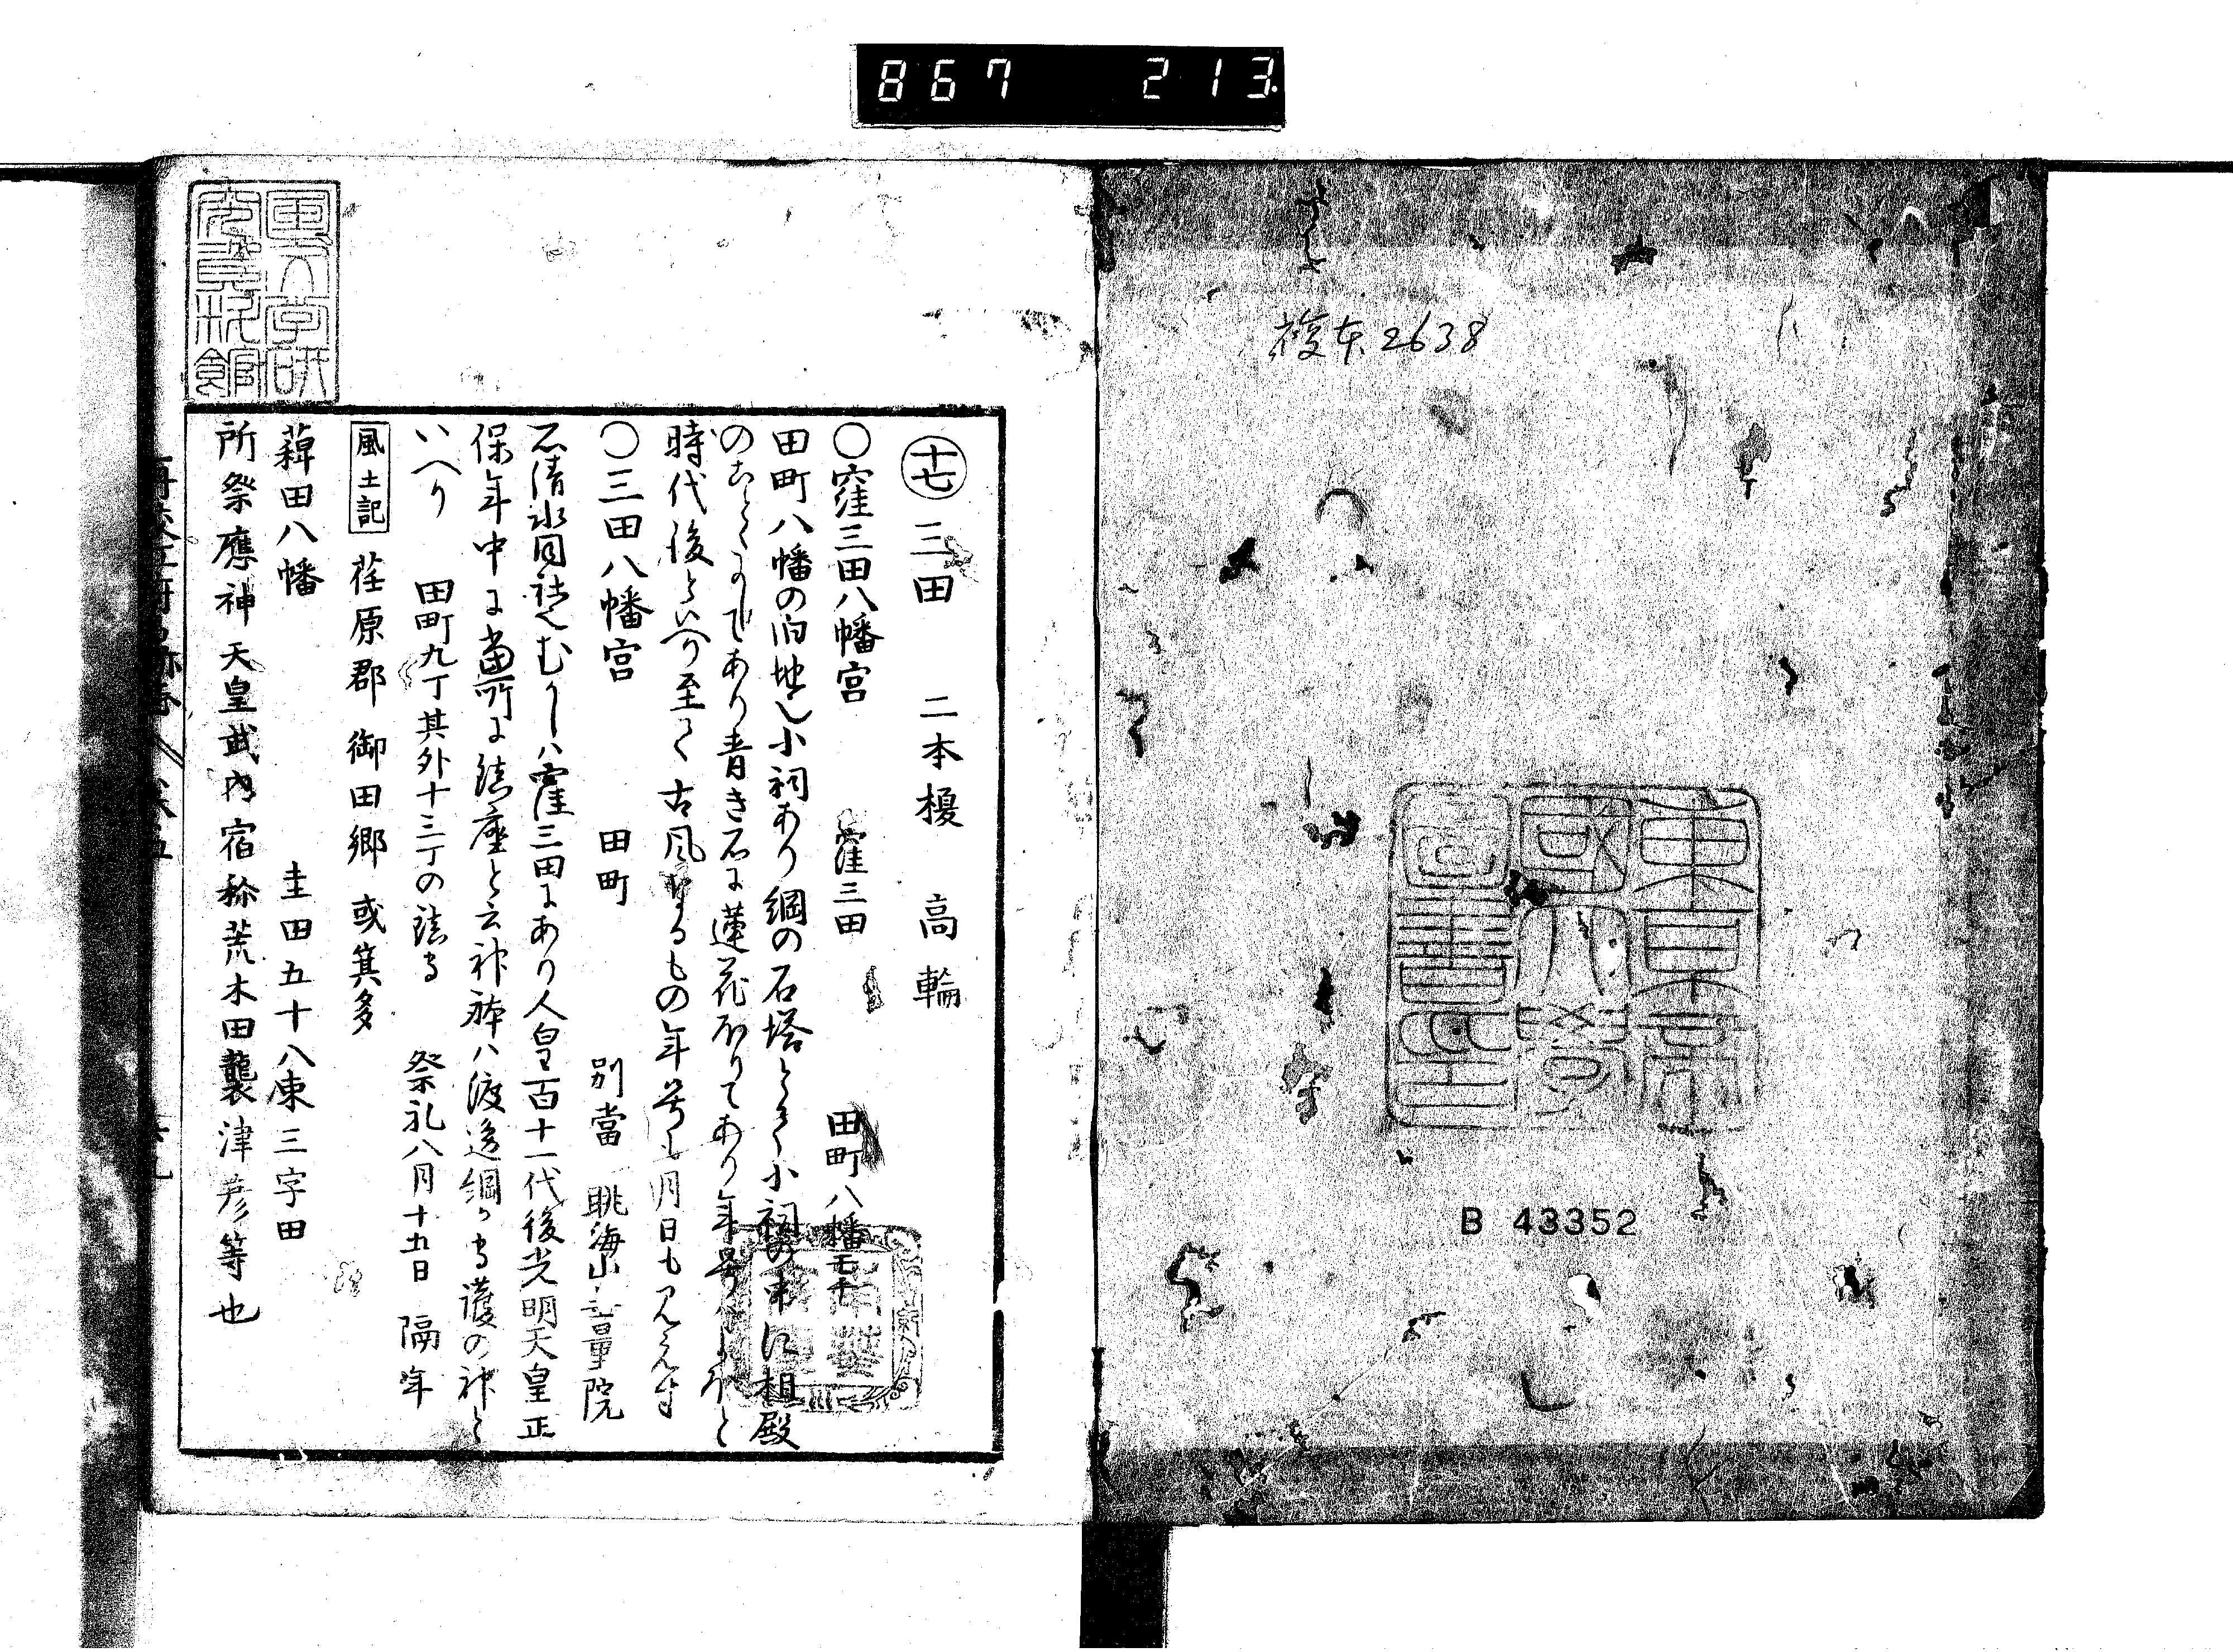 867 213
複本 2638
東京
國大學
圖書五
B 43352
十七 三田 二本榎 高輪
〇窪三田八幡宮 窪三田 田町八幡
田町八幡の旧地也小祠あり綱の石塔とき小祠の中に相殿
のあり青き石に蓮花ありてあり年号
時代後といへり至て古風なるもの年号も月日も見えす
〇三田八幡宮 田町 別當 眺海山 無量院
石清水同社也むかしハ窪三田にあり人皇百十一代後光明天皇正
保年中に當所に鎮座と云神躰ハ渡邊綱か守護の神と
いへり 田町九丁其外十三丁の鎮守 祭礼八月十五日 隔年
風土記 荏原郡 御田郷 或箕多
薭田八幡 圭田五十八束三字田
所祭應神天皇武内宿祢荒木田襲津彦等也